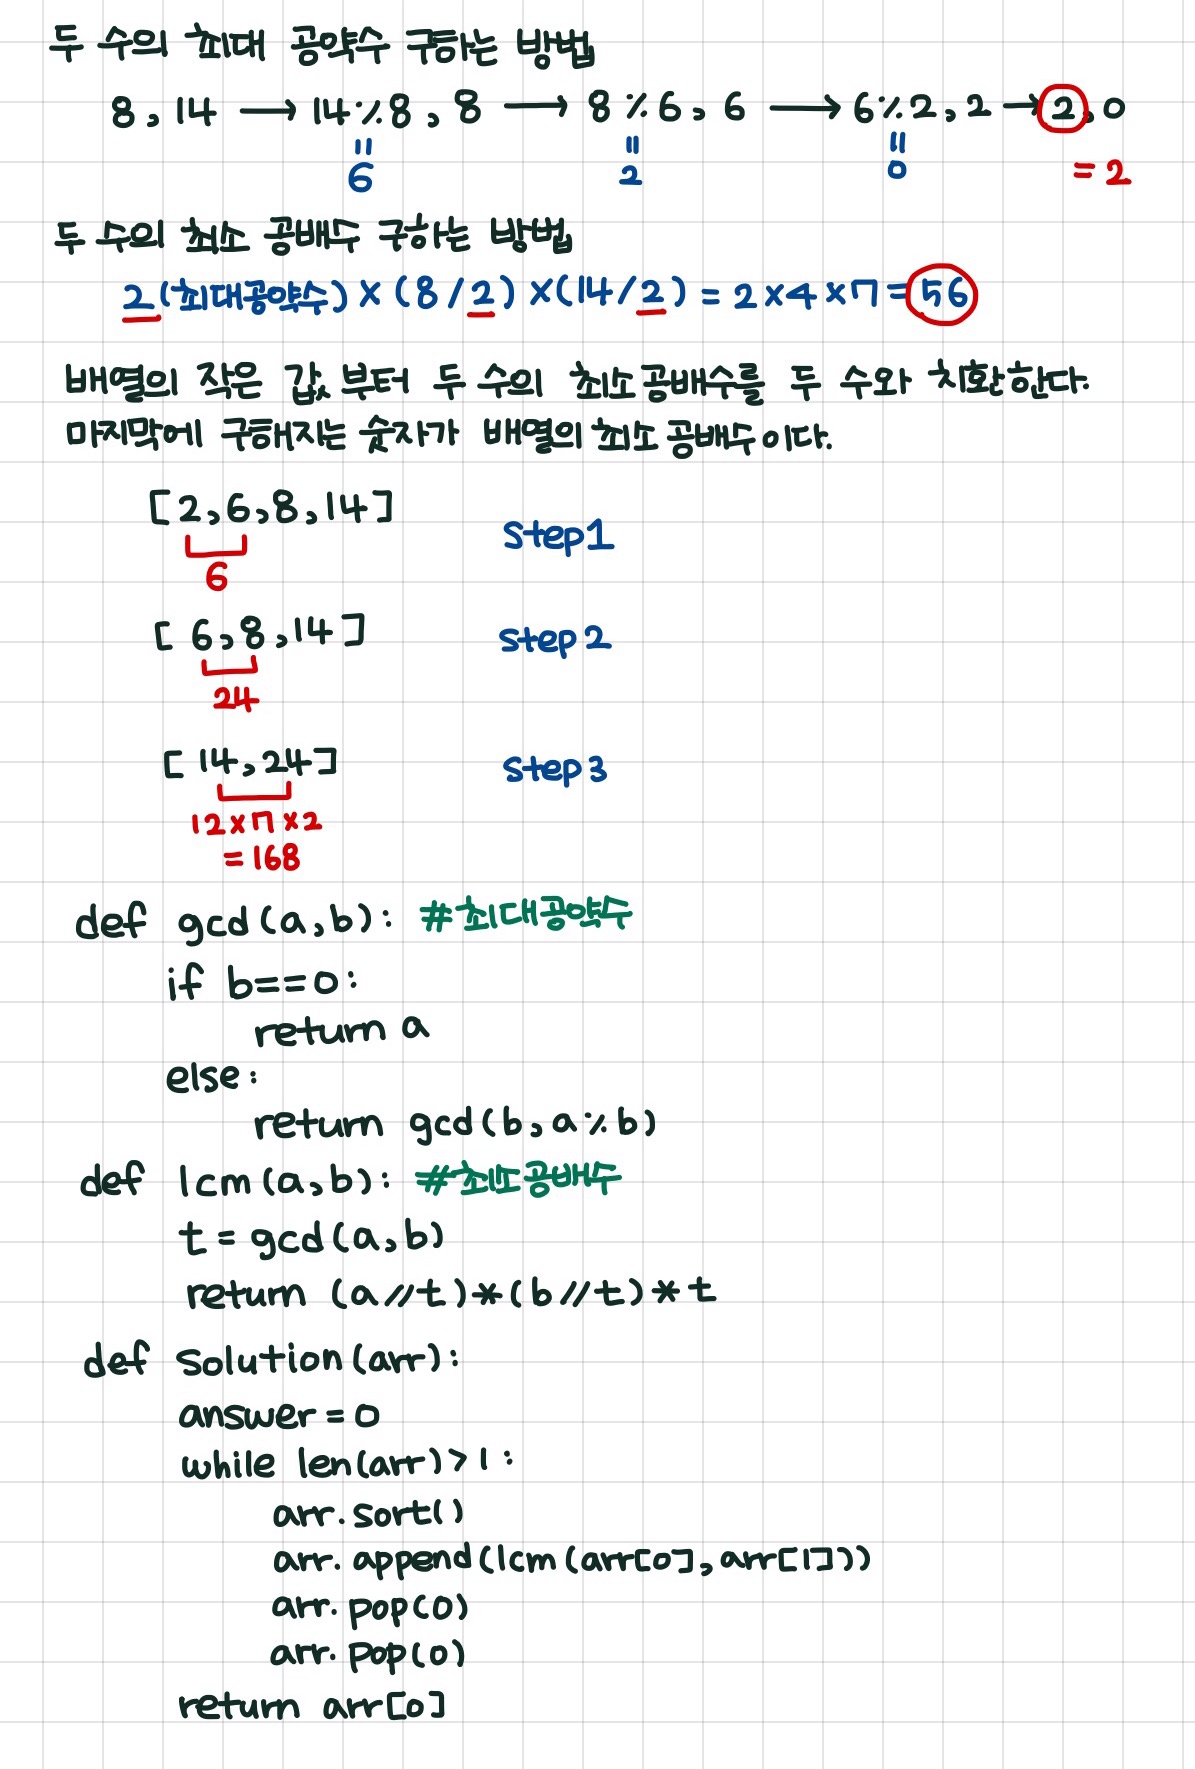 두 수의 최대 공약수 구하는 방법
8, 14 → 14%8, 8 → 8%6, 6 → 6%2, 2 → 2, 0
= 6 = 2 = 0 = 2
두 수의 최소 공배수 구하는 방법
2(최대공약수) × (8/2) × (14/2) = 2×4×7 = 56
배열의 작은 값 부터 두 수의 최소공배수를 두 수와 치환한다.
마지막에 구해지는 숫자가 배열의 최소 공배수이다.
[2, 6, 8, 14] step1
6
[6, 8, 14] step2
24
[14, 24] step3
12×7×2
= 168
def gcd(a,b): #최대공약수
if b==0:
return a
else:
return gcd(b, a%b)
def lcm(a,b): #최소공배수
t = gcd(a,b)
return (a//t)*(b//t)*t
def solution(arr):
answer = 0
while len(arr)>1:
arr.sort()
arr.append(lcm(arr[0],arr[1]))
arr.pop(0)
arr.pop(0)
return arr[0]